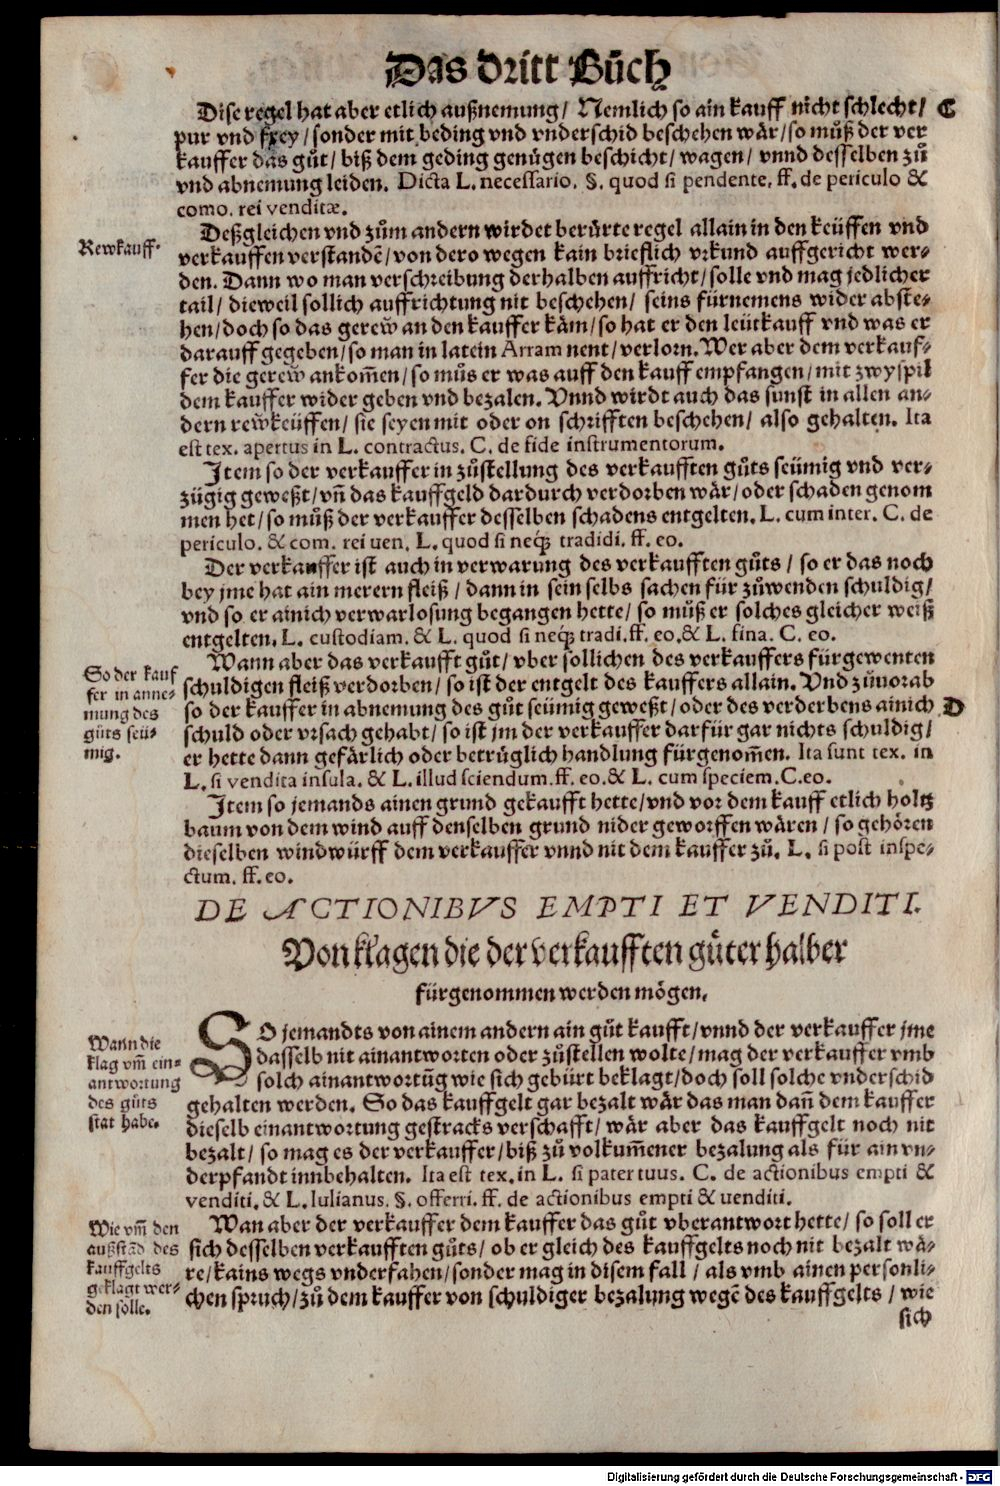 Das dritt Bůch
Dise regel hat aber etlich außnemung/ Nemlich so ain kauff nicht schlecht/ C
pur vnd frey/sonder mit beding vnd vnderschid beschehen wär/so můß der ver
kauffer das gůt/ biß dem geding genügen beschicht/wagen/ vnnd desselben zů
vnd abnemung leiden. Dicta L. necessario. §. quod si pendente. ff. de periculo &
como. rei venditæ.
Rewkauff.
Deßgleichen vnd zům andern wirdet berürte regel allain in den keüffen vnd
verkauffen verstandē/von dero wegen kain brieflich vrkund auffgericht wer-
den. Dann wo man verschreibung derhalben auffricht/solle vnd mag jedlicher
tail/ dieweil sollich auffrichtung nit beschehen/ seins fürnemens wider abste-
hen/doch so das gereẘ an den kauffer käm/so hat er den leütkauff vnd was er
darauff gegeben/so man in latein Arram nent/verlorn. Wer aber dem verkauf-
fer die gereẘ ankom̄en/so můs er was auff den kauff empfangen/mit zwyspil
dem kauffer wider geben vnd bezalen. Vnnd wirdt auch das sunst in allen an-
dern reẘkeüffen/ sie seyen mit oder on schrifften beschehen/ also gehalten. Ita
est tex. apertus in L. contractus. C. de fide instrumentorum.
Item so der verkauffer in zůstellung des verkaufften gůts seümig vnd ver-
zügig geweßt/vn̄ das kauffgeld dardurch verdorben wär/oder schaden genom
men het/so můß der verkauffer desselben schadens entgelten. L. cum inter. C. de
periculo. & com. rei uen. L. quod si neq̃ tradidi. ff. eo.
Der verkauffer ist auch in verwarung des verkaufften gůts/ so er das noch
bey jme hat ain merern fleiß/ dann in sein selbs sachen für zůwenden schuldig/
vnd so er ainich verwarlosung begangen hette/ so můß er solches gleicher weiß
entgelten. L. custodiam. & L. quod si neq̃ tradi. ff. eo. & L. fina. C. eo.
So der kauf
fer in anne-
mung des
gůts seü-
mig.
Wann aber das verkaufft gůt/ vber sollichen des verkauffers fürgewenten
schuldigen fleiß verdorben/ so ist der entgelt des kauffers allain. Vnd zůuorab
so der kauffer in abnemung des gůt seümig geweßt/oder des verderbens ainich D
schuld oder vrsach gehabt/ so ist jm der verkauffer darfür gar nichts schuldig/
er hette dann gefärlich oder betrüglich handlung fürgenom̄en. Ita sunt tex. in
L. si vendita insula. & L. illud sciendum. ff. eo. & L. cum speciem. C. eo.
Item so jemands ainen grund gekaufft hette/vnd vor dem kauff etlich holtz
baum von dem wind auff denselben grund nider geworffen wären/ so gehören
dieselben windwürff dem verkauffer vnnd nit dem kauffer zů. L. si post inspe-
ctum. ff. eo.
DE ACTIONIBVS EMPTI ET VENDITI.
Von klagen die der verkaufften güter halber
fürgenommen werden mögen.
Wann die
klag vm̄ ein-
antwortung
des gůts
stat habe.
SO jemandts von ainem andern ain gůt kaufft/vnnd der verkauffer jme
dasselb nit ainantworten oder zůstellen wolte/mag der verkauffer vmb
solch ainantwortūg wie sich gebürt beklagt/doch soll solche vnderschid
gehalten werden. So das kauffgelt gar bezalt wär das man dan̄ dem kauffer
dieselb einantwortung gestracks verschafft/ wär aber das kauffgelt noch nit
bezalt/ so mag es der verkauffer/biß zů volkum̄ener bezalung als für ain vn-
derpfandt innbehalten. Ita est tex. in L. si pater tuus. C. de actionibus empti &
venditi. & L. Iulianus. §. offerri. ff. de actionibus empti & uenditi.
Wie vm̄ den
außstād des
kauffgelts
geklagt wer-
den solle.
Wan aber der verkauffer dem kauffer das gůt vberantwort hette/ so soll er
sich desselben verkaufften gůts/ ob er gleich des kauffgelts noch nit bezalt wä-
re/kains wegs vnderfahen/sonder mag in disem fall/ als vmb ainen personli-
chen spruch/zů dem kauffer von schuldiger bezalung wegē des kauffgelts/ wie
sich
Digitalisierung gefördert durch die Deutsche Forschungsgemeinschaft - DFG